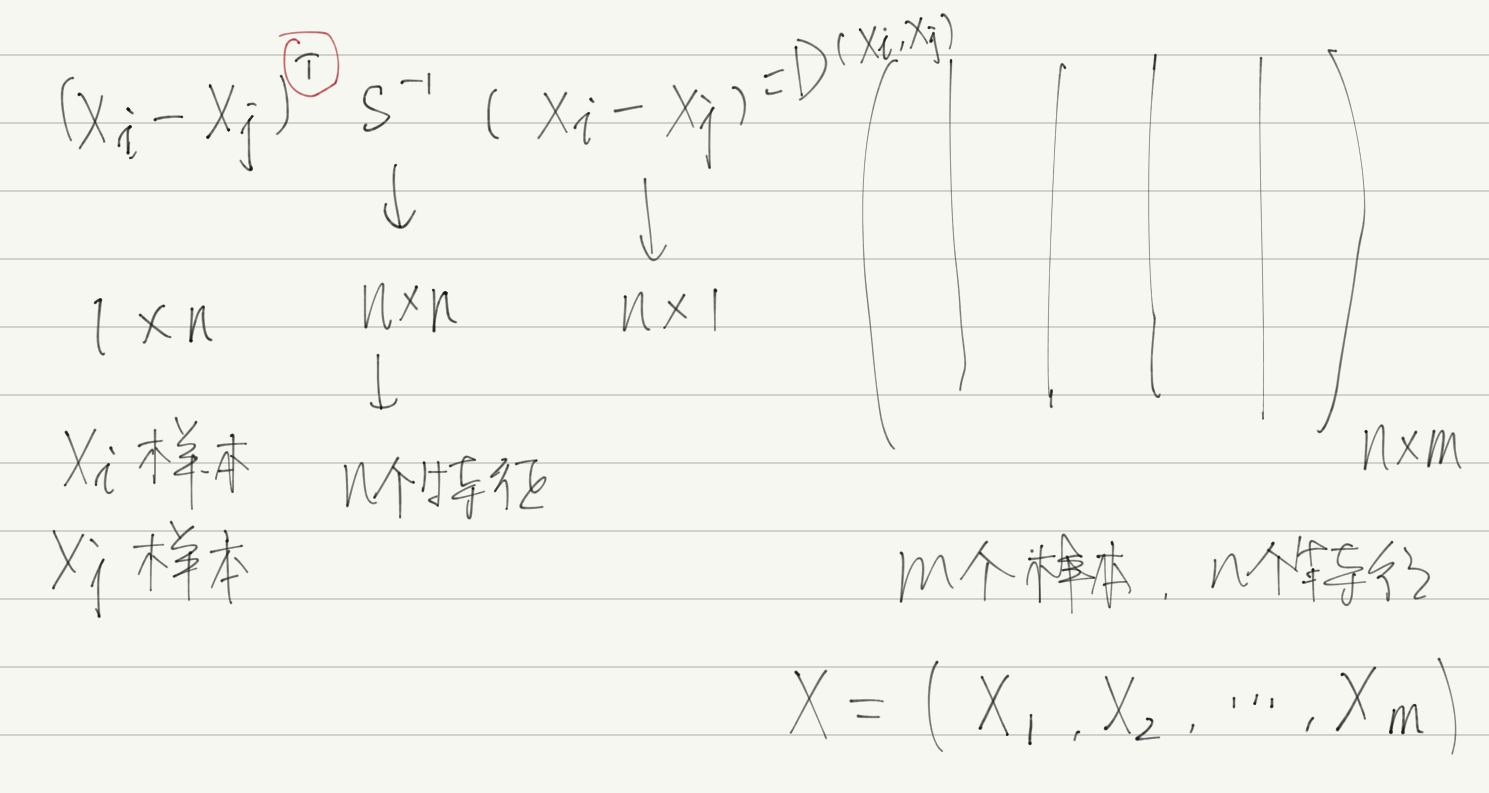 (Xi - Xj)^T S^-1 (Xi - Xj) = D(Xi, Xj)
1 × n n × n n × 1
n × m
Xi 样本 n个特征
Xj 样本
m个样本, n个特征
X = (X1, X2, ..., Xm)